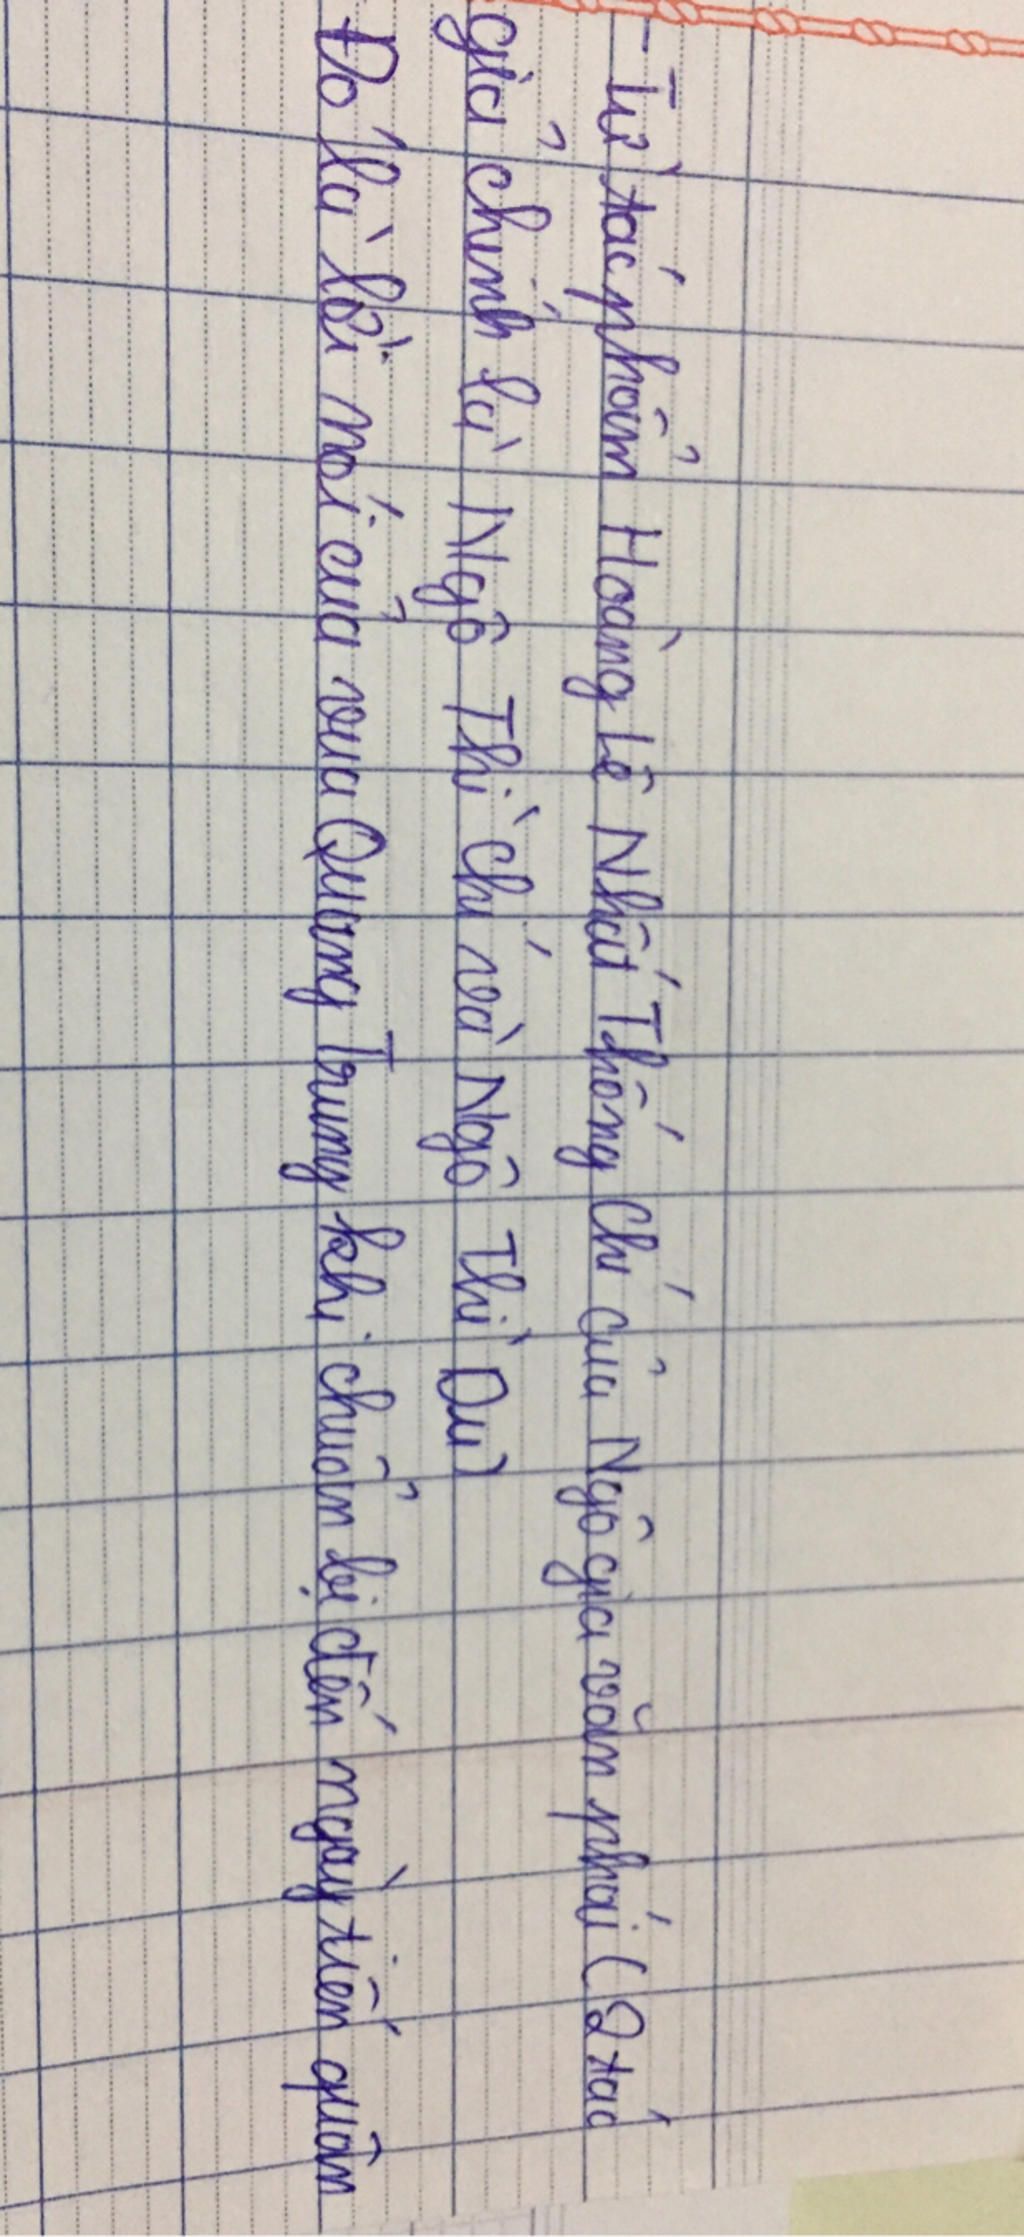 - Từ tác phẩm Hoàng Lê Nhất Thống Chí của Ngô gia văn phái (2 tác
giả chính là Ngô Thì Chí và Ngô Thì Du)
Đó là lời nói của vua Quang Trung khi chuẩn bị đến ngày tiến quân